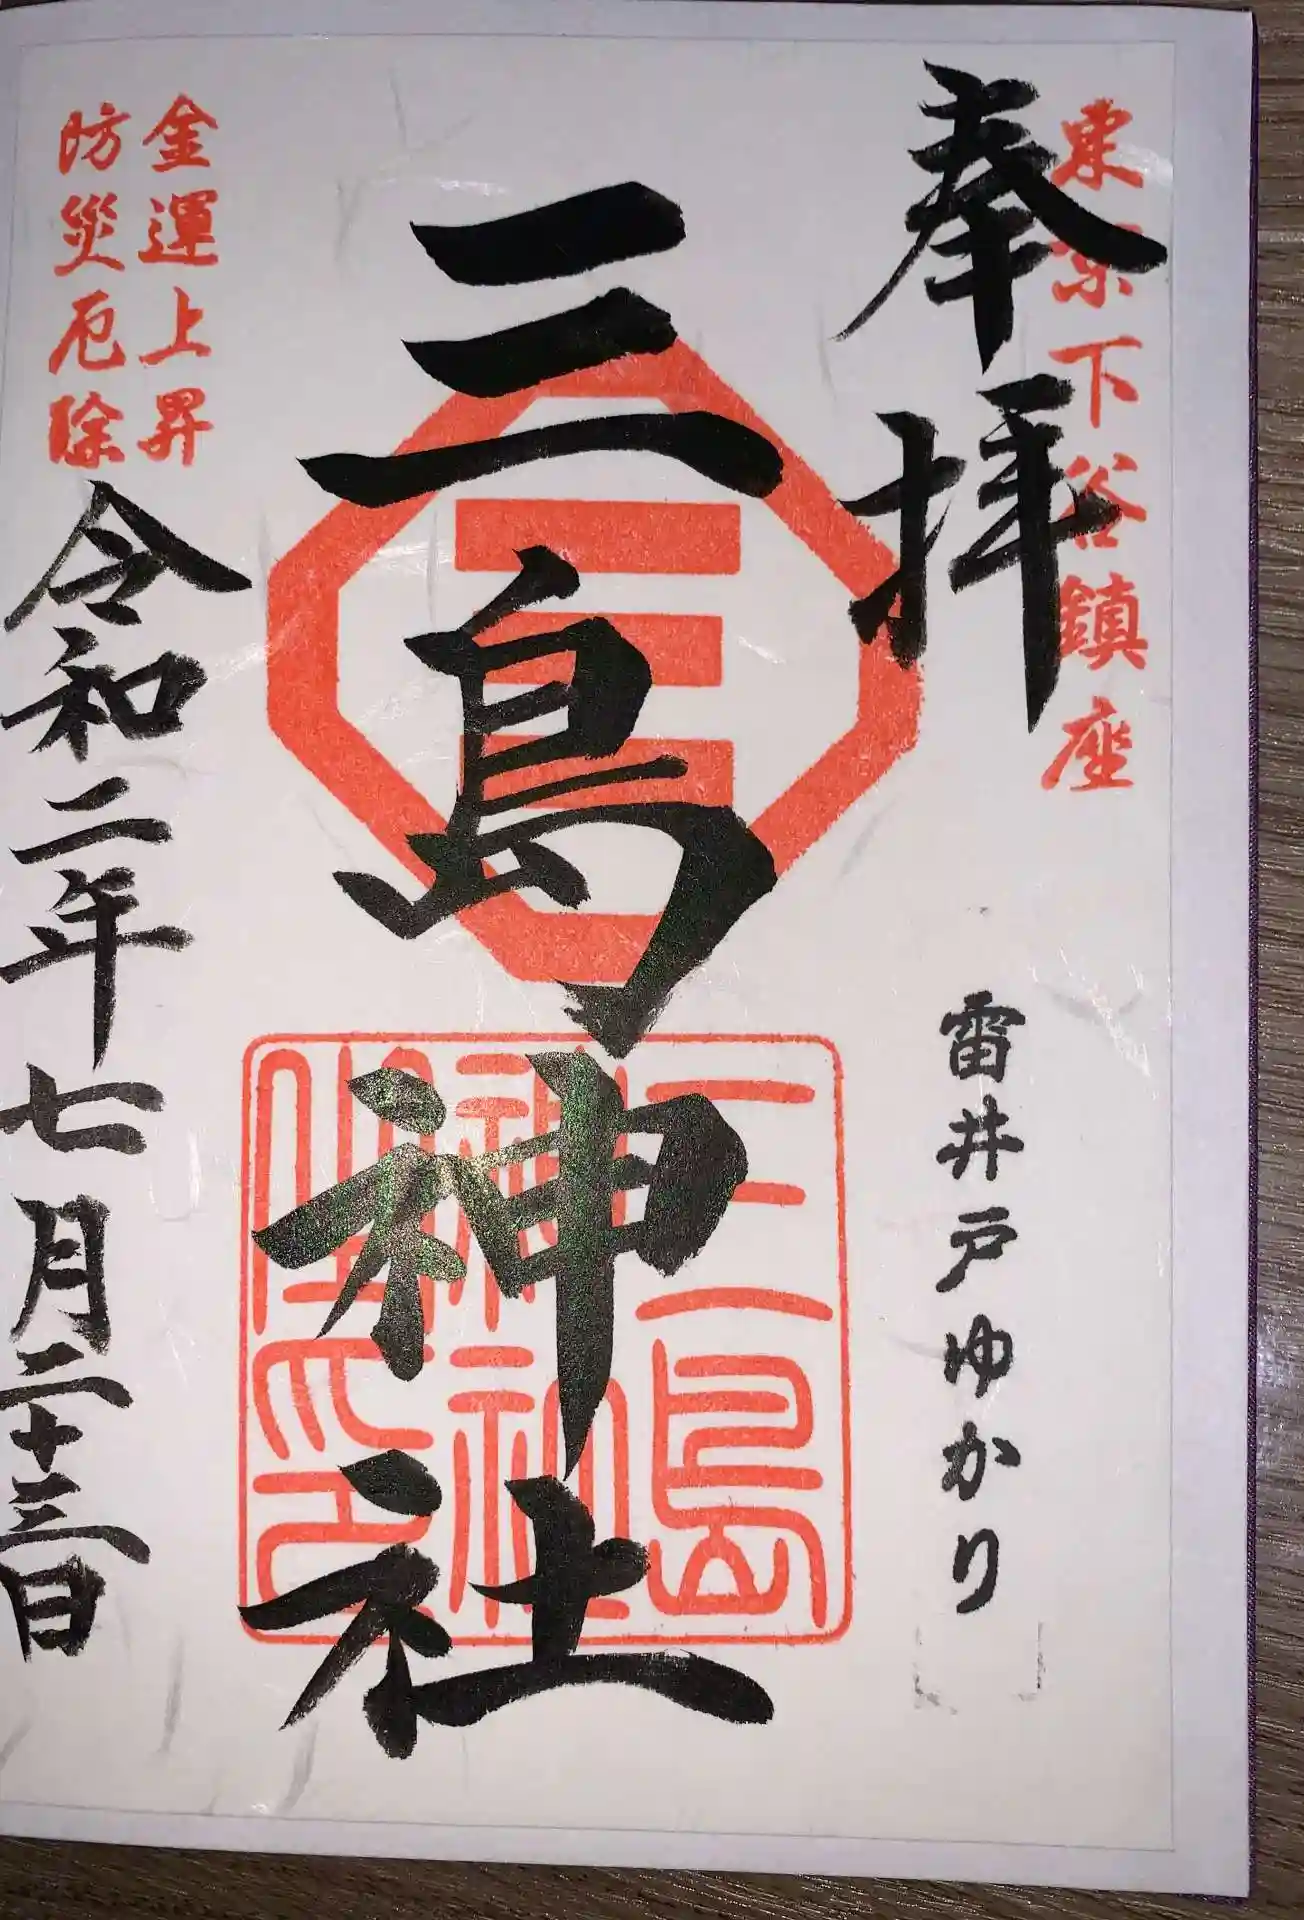 東京下谷鎮座
奉拝
雷井戸ゆかり
三島神社
三島
神社
金運上昇
防災厄除
令和二年七月二十三日